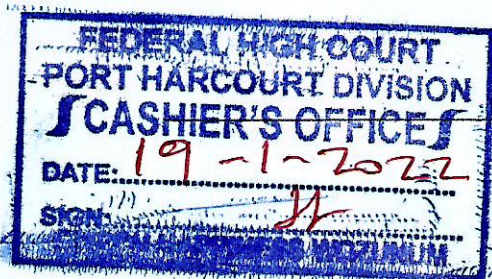 FEDERAL HIGH COURT
PORT HARCOURT DIVISION
CASHIER'S OFFICE
DATE: 19-1-2022
SIGN: